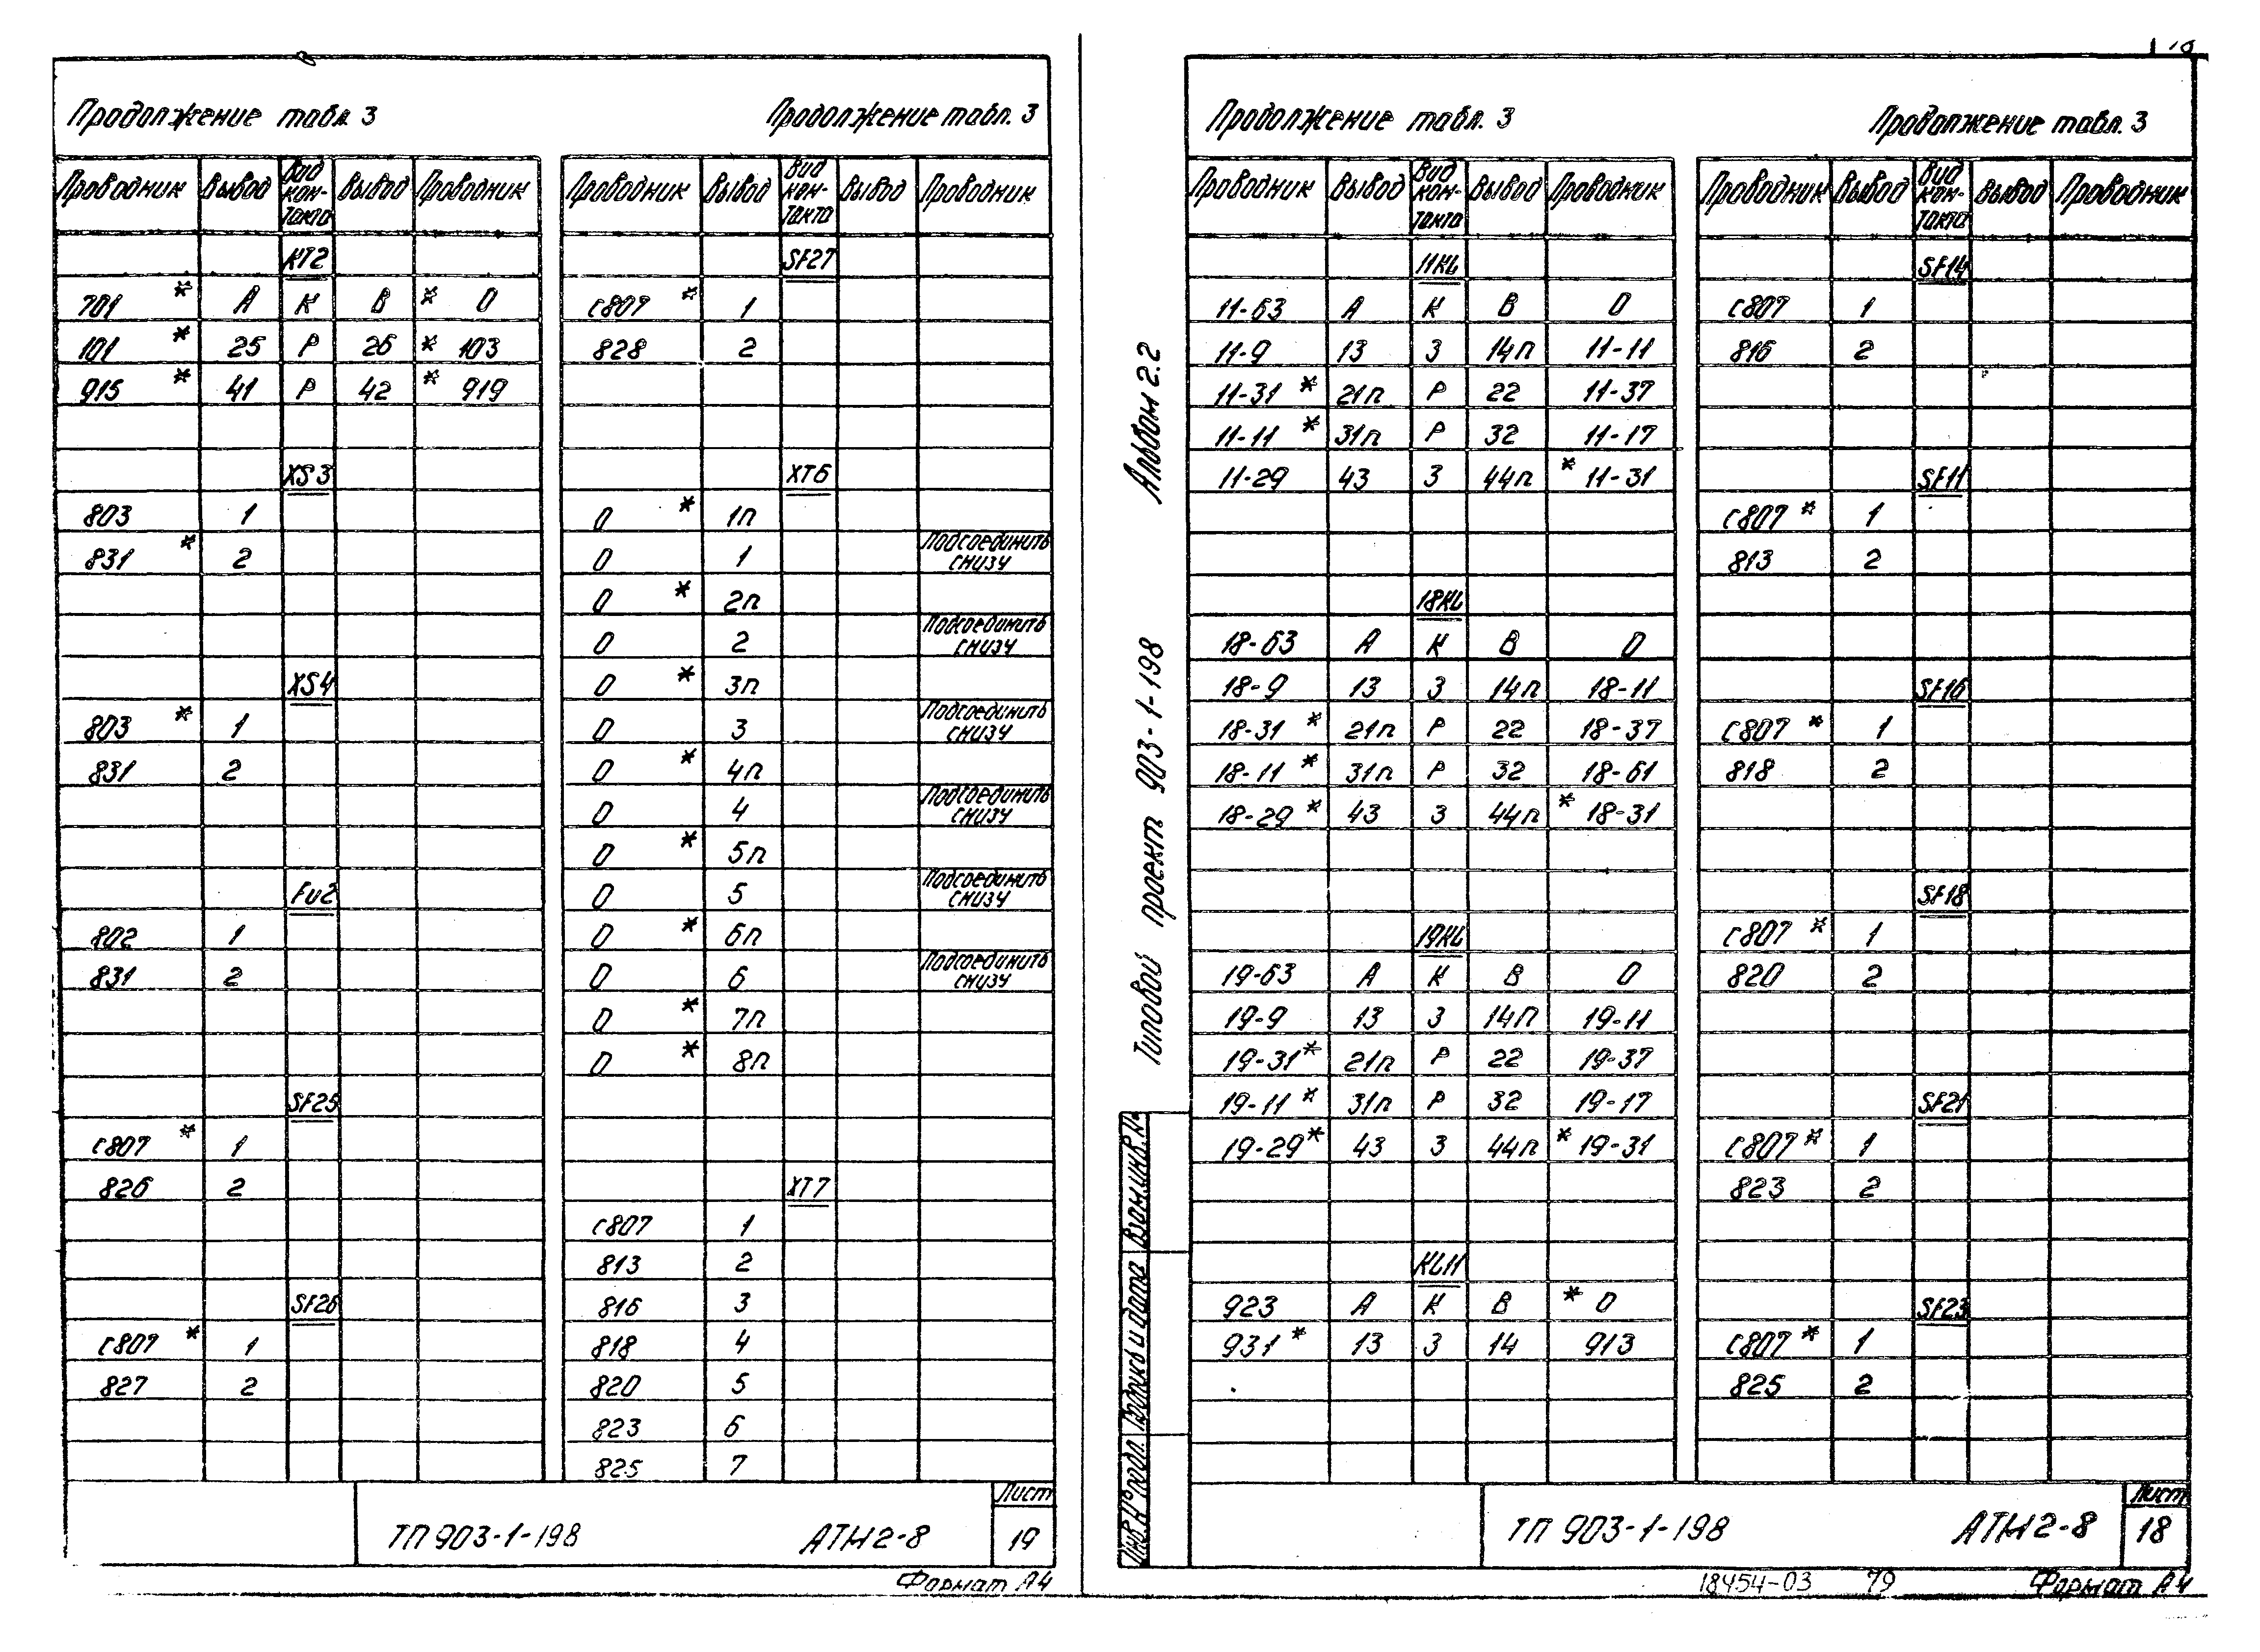 Продолжение табл. 3
Проводник Вывод Вид кон- такта Вывод Проводник
КТ2
701 * А К В * 0
101 * 25 Р 26 * 103
915 * 41 Р 42 * 919
XS3
803 1
831 * 2
XS4
803 * 1
831 2
Fu2
802 1
831 2
SF25
С807 * 1
826 2
SF26
С807 * 1
827 2
Продолжение табл. 3
Проводник Вывод Вид кон- такта Вывод Проводник
SF27
С807 * 1
828 2
XT6
0 * 1п
0 1 Подсоединить снизу
0 * 2п
0 2 Подсоединить снизу
0 * 3п
0 3 Подсоединить снизу
0 * 4п
0 4 Подсоединить снизу
0 * 5п
0 5 Подсоединить снизу
0 * 6п
0 6 Подсоединить снизу
0 * 7п
0 * 8п
XT7
С807 1
813 2
816 3
818 4
820 5
823 6
825 7
ТП 903-1-198 АТМ2-8 Лист 19
Формат А4
Альбом 2.2
Типовой проект 903-1-198
Взам.инв.№
Подпись и дата
Инв.№ подл.
Продолжение табл. 3
Проводник Вывод Вид кон- такта Вывод Проводник
11KL
11-63 А К В 0
11-9 13 З 14п 11-11
11-31 * 21п Р 22 11-37
11-11 * 31п Р 32 11-17
11-29 43 З 44п * 11-31
18KL
18-63 А К В 0
18-9 13 З 14п 18-11
18-31 * 21п Р 22 18-37
18-11 * 31п Р 32 18-61
18-29 * 43 З 44п * 18-31
19KL
19-63 А К В 0
19-9 13 З 14п 19-11
19-31 * 21п Р 22 19-37
19-11 * 31п Р 32 19-17
19-29 * 43 З 44п * 19-31
KL11
923 А К В * 0
931 * 13 З 14 913
Продолжение табл. 3
Проводник Вывод Вид кон- такта Вывод Проводник
SF14
С807 1
816 2
SF11
С807 * 1
813 2
SF16
С807 * 1
818 2
SF18
С807 * 1
820 2
SF21
С807 * 1
823 2
SF23
С807 * 1
825 2
ТП 903-1-198 АТМ2-8 Лист 18
18454-03 79 Формат А4